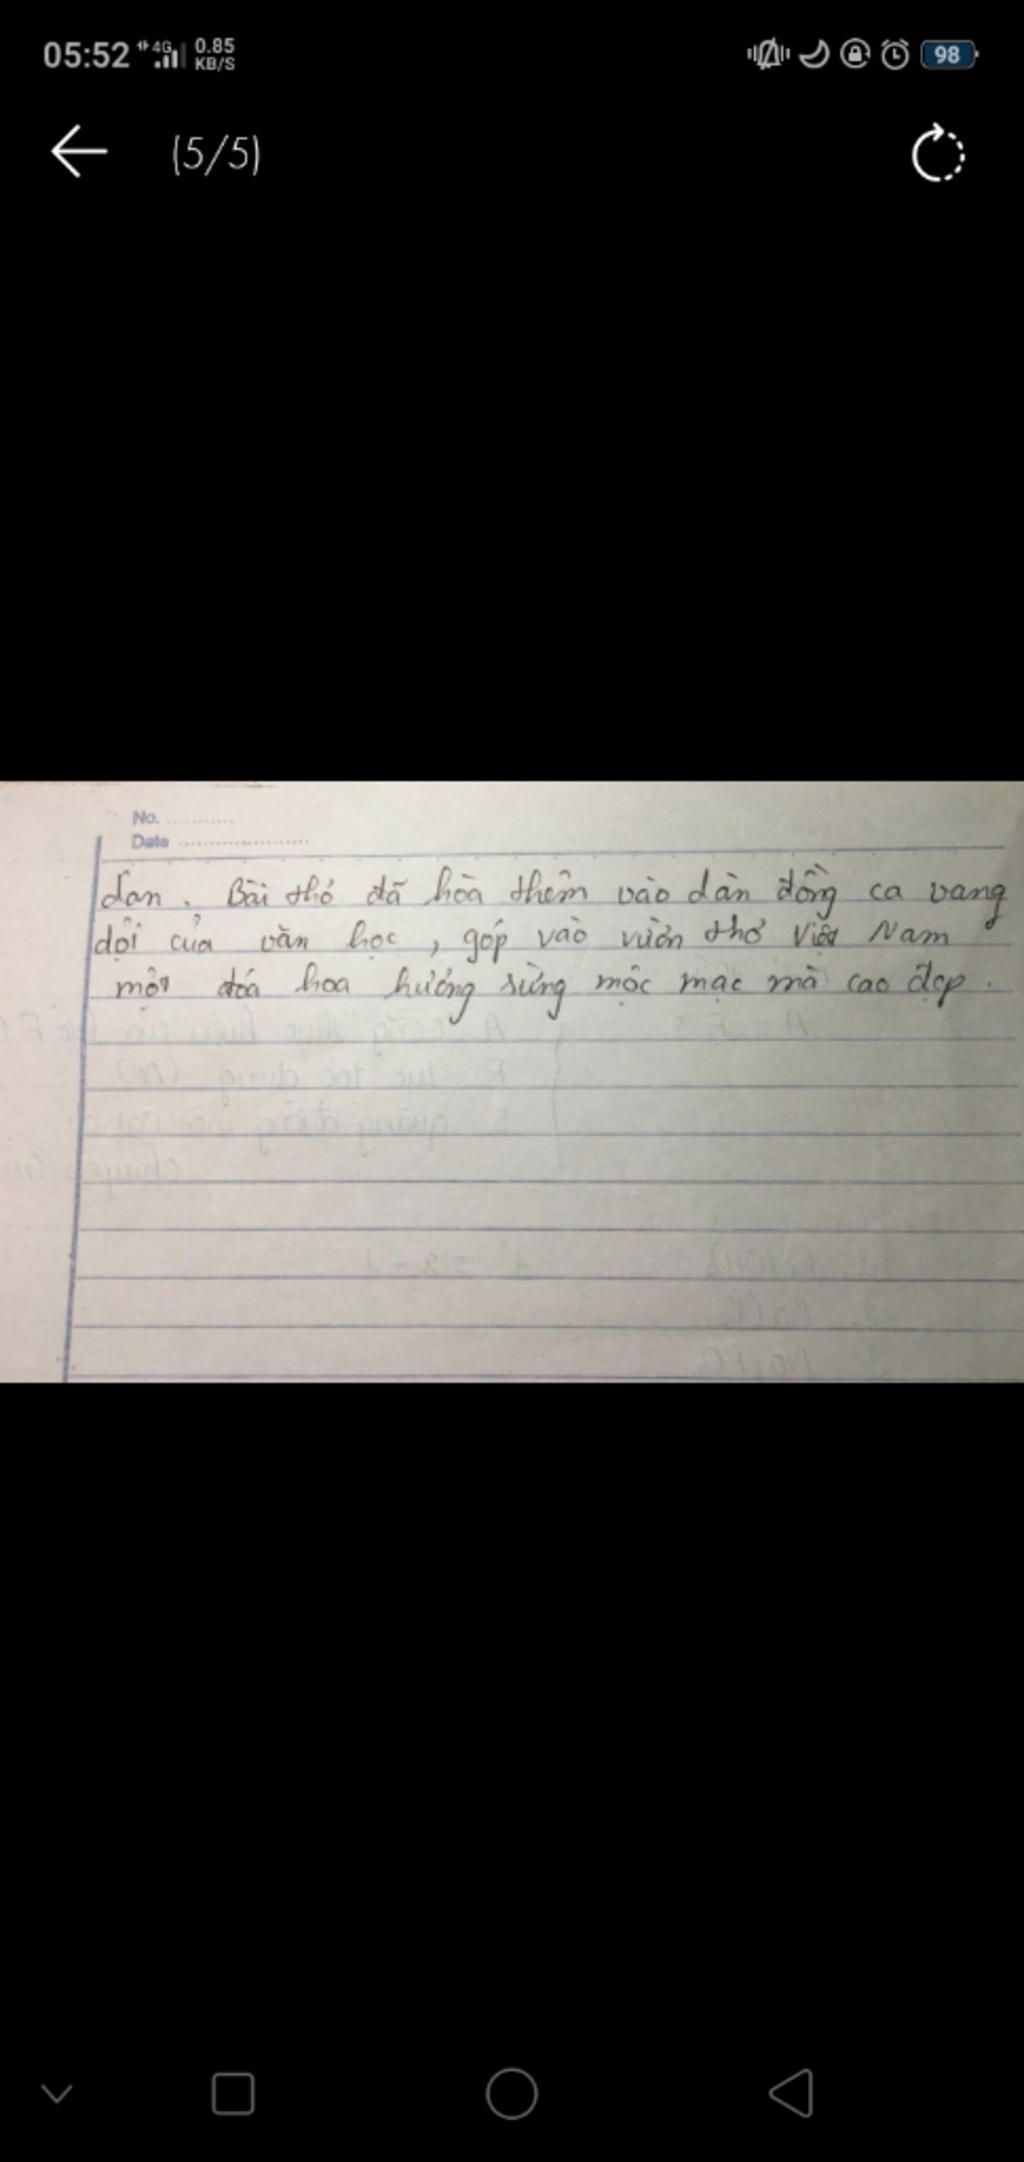 05:52 4G 0.85 KB/S 98
(5/5)
No. ...........
Date .....................
dan. Bài thơ đã hòa thêm vào dàn đồng ca vang
dội của văn học, góp vào vườn thơ Việt Nam
một đóa hoa hướng rừng mộc mạc mà cao đẹp.